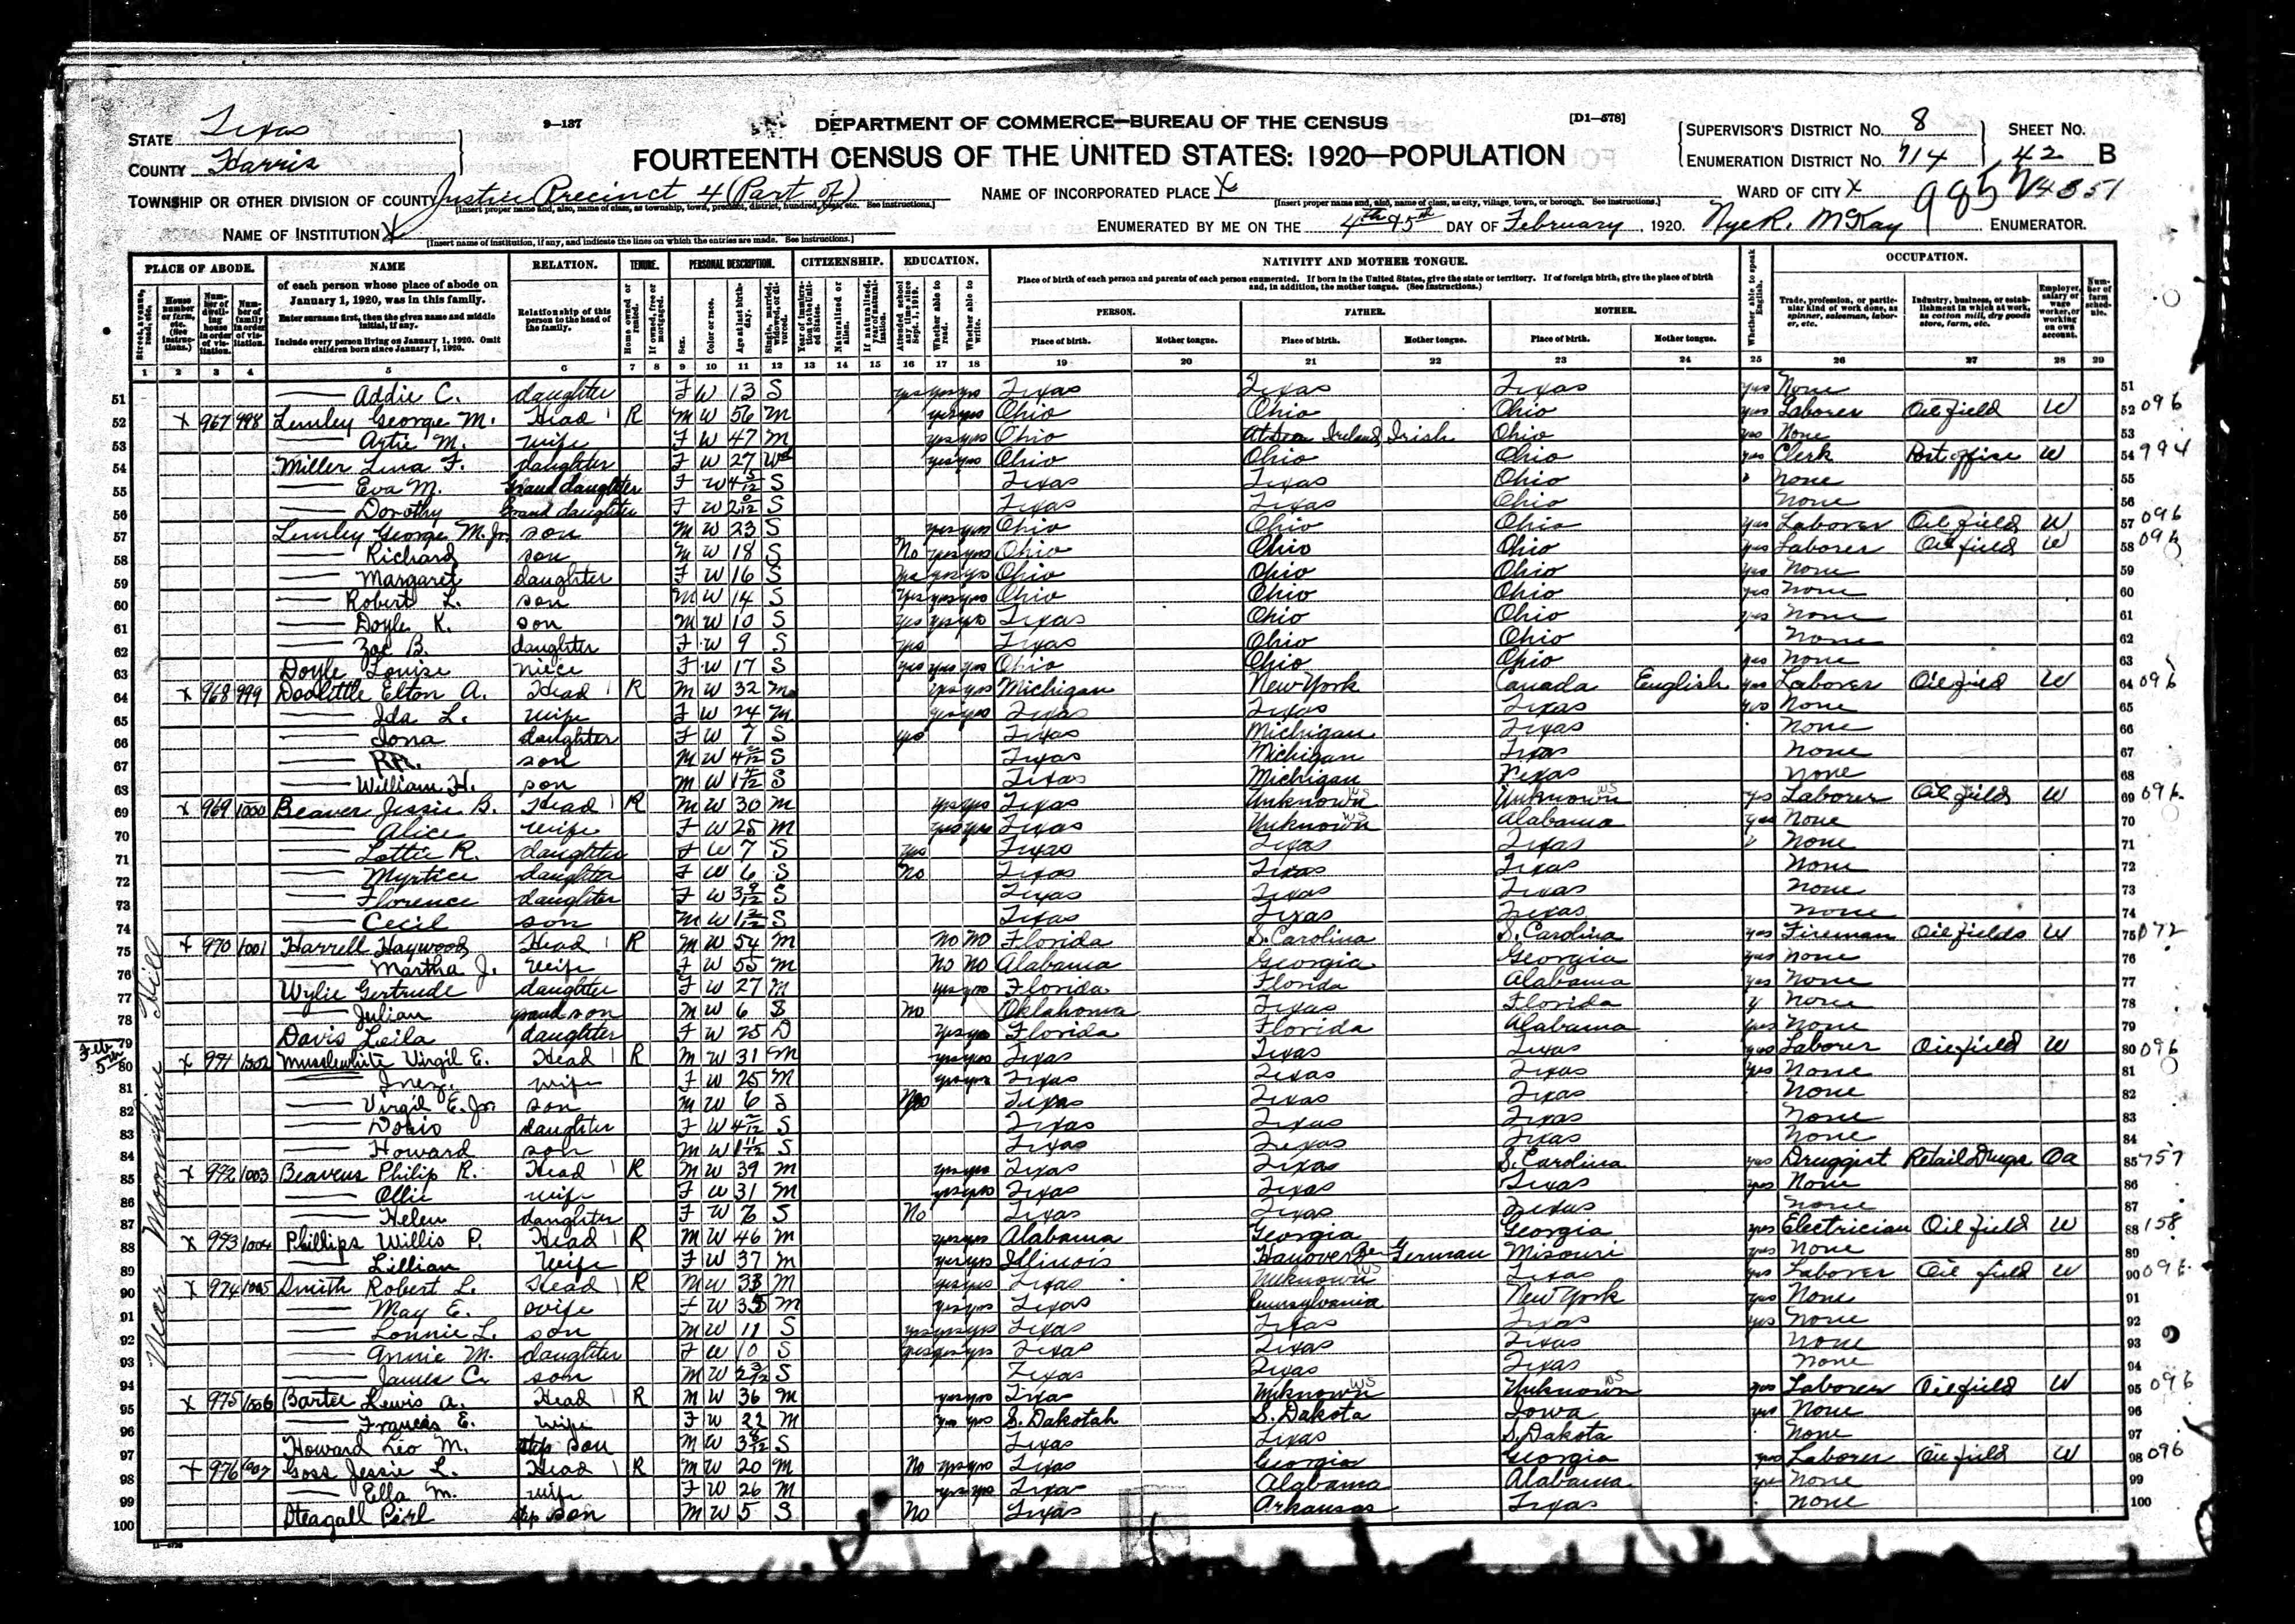 9—137
DEPARTMENT OF COMMERCE—BUREAU OF THE CENSUS
[D1—578]
STATE Texas
COUNTY Harris
FOURTEENTH CENSUS OF THE UNITED STATES: 1920—POPULATION
SUPERVISOR'S DISTRICT No. 8
ENUMERATION DISTRICT No. 114
SHEET No. 42 B
TOWNSHIP OR OTHER DIVISION OF COUNTY Justice Precinct 4 (Part of)
NAME OF INCORPORATED PLACE X
WARD OF CITY X
NAME OF INSTITUTION X
[Insert name of institution, if any, and indicate the lines on which the entries are made. See instructions.]
ENUMERATED BY ME ON THE 4th & 5th DAY OF February, 1920. Nye R. McKay ENUMERATOR.
PLACE OF ABODE. NAME RELATION. TENURE. PERSONAL DESCRIPTION. CITIZENSHIP. EDUCATION. NATIVITY AND MOTHER TONGUE. OCCUPATION.
of each person whose place of abode on January 1, 1920, was in this family.
Enter surname first, then the given name and middle initial, if any.
Include every person living on January 1, 1920. Omit children born since January 1, 1920.
Relationship of this person to the head of the family.
Place of birth of each person and parents of each person enumerated. If born in the United States, give the state or territory. If of foreign birth, give the place of birth and, in addition, the mother tongue. (See instructions.)
PERSON. FATHER. MOTHER.
Place of birth. Mother tongue. Place of birth. Mother tongue. Place of birth. Mother tongue.
1 2 3 4 5 6 7 8 9 10 11 12 13 14 15 16 17 18 19 20 21 22 23 24 25 26 27 28 29
51 — Addie C. daughter F W 13 S yes yes yes Texas Texas Texas yes None
52 X 967 998 Lemley George M. Head R M W 56 M yes yes Ohio Ohio Ohio yes Laborer Oil field W 096
53 — Artie M. wife F W 47 M yes yes Ohio At Sea Ireland Irish Ohio yes None
54 Miller Lina F. daughter F W 27 Wd yes yes Ohio Ohio Ohio yes Clerk Post office W 994
55 — Eva M. Grand daughter F W 4 5/12 S Texas Texas Ohio None
56 — Dorothy Grand daughter F W 2 0/12 S Texas Texas Ohio None
57 Lemley George M. Jr. son M W 23 S yes yes Ohio Ohio Ohio yes Laborer Oil field W 096
58 — Richard son M W 18 S No yes yes Ohio Ohio Ohio yes Laborer Oil field W 096
59 — Margaret daughter F W 16 S yes yes yes Ohio Ohio Ohio yes None
60 — Robert L. son M W 14 S yes yes yes Ohio Ohio Ohio yes None
61 — Doyle K. son M W 10 S yes yes yes Texas Ohio Ohio yes None
62 — Zoe B. daughter F W 9 S yes Texas Ohio Ohio None
63 Doyle Louise niece F W 17 S yes yes yes Ohio Ohio Ohio yes None
64 X 968 999 Doolittle Elton A. Head R M W 32 M yes yes Michigan New York Canada English yes Laborer Oil field W 096
65 — Ida L. wife F W 24 M yes yes Texas Texas Texas yes None
66 — Iona daughter F W 7 S yes Texas Michigan Texas None
67 — R.R. son M W 4 2/12 S Texas Michigan Texas None
68 — William H. son M W 1 4/12 S Texas Michigan Texas None
69 X 969 1000 Beaver Jessie B. Head R M W 30 M yes yes Texas Unknown Unknown yes Laborer Oil field W 096
70 — Alice wife F W 25 M yes yes Texas Unknown Alabama yes None
71 — Lottie R. daughter F W 7 S yes Texas Texas Texas None
72 — Myrtice daughter F W 6 S No Texas Texas Texas None
73 — Florence daughter F W 3 9/12 S Texas Texas Texas None
74 — Cecil son M W 1 2/12 S Texas Texas Texas None
75 X 970 1001 Harrell Haywood Head R M W 54 M No No Florida S. Carolina S. Carolina yes Fireman Oil fields W 072
76 — Martha J. Wife F W 55 M No No Alabama Georgia Georgia yes None
77 Wylie Gertrude daughter F W 27 M yes yes Florida Florida Alabama yes None
78 — Julian grand son M W 6 S No Oklahoma Texas Florida y None
79 Davis Leila daughter F W 25 D yes yes Florida Florida Alabama yes None
Feb 5th
80 X 971 1002 Musslewhite Virgil E. Head R M W 31 M yes yes Texas Texas Texas yes Laborer Oil field W 096
81 — Inez. wife F W 25 M yes yes Texas Texas Texas yes None
82 — Virgil E. Jr. son M W 6 S No Texas Texas Texas None
83 — Doris daughter F W 4 2/12 S Texas Texas Texas None
84 — Howard son M W 1 11/12 S Texas Texas Texas None
85 X 972 1003 Beavens Philip R. Head R M W 39 M yes yes Texas Texas S. Carolina yes Druggist Retail Drugs Oa 757
86 — Ollie wife F W 31 M yes yes Texas Texas Texas yes None
87 — Helen daughter F W 6 S No Texas Texas Texas None
88 X 973 1004 Phillips Willis P. Head R M W 46 M yes yes Alabama Georgia Georgia yes Electrician Oil field W 158
89 — Lillian Wife F W 37 M yes yes Illinois Hanover Ger German Misouri yes None
90 X 974 1005 Smith Robert L. Head R M W 33 M yes yes Texas Unknown Texas yes Laborer Oil field W 096
91 — May E. wife F W 35 M yes yes Texas Pennsylvania New York yes None
92 — Lonnie L. son M W 11 S yes yes yes Texas Texas Texas yes None
93 — Annie M. daughter F W 10 S yes yes yes Texas Texas Texas None
94 — James C. son M W 2 3/12 S Texas Texas Texas None
95 X 975 1006 Bartee Lewis A. Head R M W 36 M yes yes Texas Unknown Unknown yes Laborer Oil field W 096
96 — Frances E. Wife F W 22 M yes yes S. Dakotah S. Dakota Iowa yes None
97 Howard Leo M. step son M W 3 8/12 S Texas Texas S. Dakota None
98 X 976 1007 Goss Jessie L. Head R M W 20 M No yes yes Texas Georgia Georgia yes Laborer Oil field W 096
99 — Ella M. wife F W 26 M yes yes Texas Alabama Alabama yes None
100 Steagall Perl step son M W 5 S No Texas Arkansas Texas None
Near Moonshine Hill